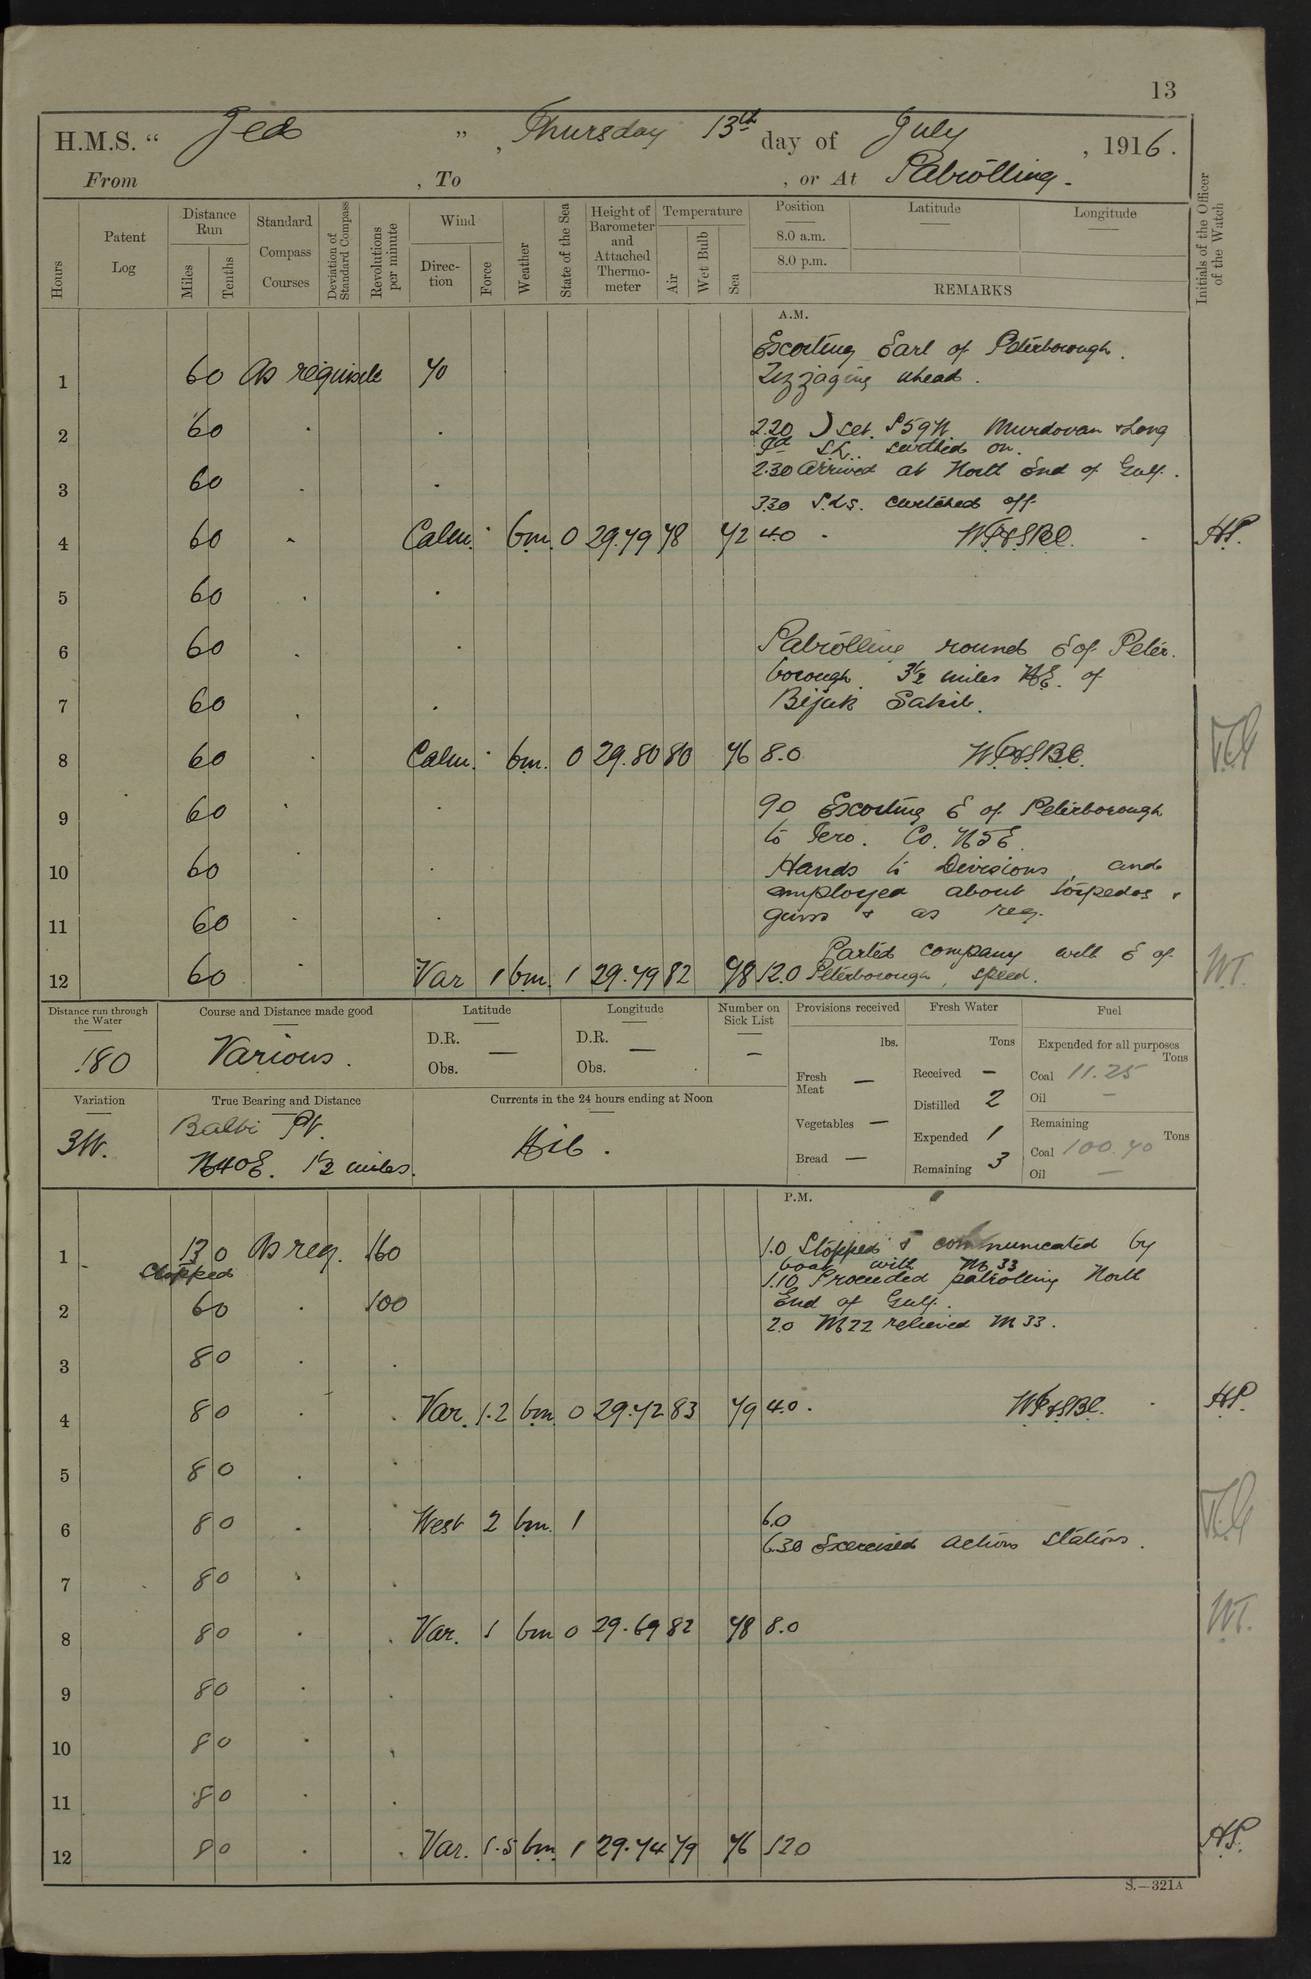 13
H.M.S. “ Jed ”, Thursday 13th day of July, 1916.
From , To , or At Patrolling.
Hours
Patent Log
Distance Run
Miles
Tenths
Standard Compass Courses
Deviation of Standard Compass
Revolutions per minute
Wind
Direction
Force
Weather
State of the Sea
Height of Barometer and Attached Thermometer
Temperature
Air
Wet Bulb
Sea
Position
8.0 a.m.
8.0 p.m.
Latitude
Longitude
REMARKS
Initials of the Officer of the Watch
A.M.
Escorting Earl of Peterborough.
1 6 0 As requisite 70 Zizzaging ahead.
2 6 0 . . 2.20 ) set. S59W Murdovan & Long
S.L. switched on.
2.30 Arrived at North End of Gulf.
3 6 0 . .
3.30 S.Ls. switched off
4 6 0 . Calm. . bm. 0 29.79 78 72 4.0 . WT&SBC. . HP.
5 6 0 . .
6 6 0 . . Patrolling round E of Peter-
borough 3½ miles NE. of
7 6 0 . . Bijuk Sahib.
8 6 0 . Calm. . bm. 0 29.80 80 76 8.0 WT&SBC.
9 6 0 . . 9.0 Escorting E of Peterborough
to Jero. Co. N5E.
10 6 0 . . Hands to Divisions, and
employed about torpedos &
11 6 0 . . guns & as req.
Parted company with E of
12 6 0 . Var 1 bm. 1 29.79 82 78 12.0 Peterborough, speed. WT.
Distance run through the Water
180
Course and Distance made good
Various.
Latitude
D.R. —
Obs.
Longitude
D.R. —
Obs.
Number on Sick List
—
Provisions received
lbs.
Fresh Meat —
Vegetables —
Bread —
Fresh Water
Tons
Received —
Distilled 2
Expended 1
Remaining 3
Fuel
Expended for all purposes
Tons
Coal 11.25
Oil —
Remaining
Tons
Coal 100.70
Oil —
Variation
3W.
True Bearing and Distance
Balbi Pt.
N40E. 1½ miles.
Currents in the 24 hours ending at Noon
Nil.
P.M.
1 13 0 As req. 160 1.0 Stopped & communicated by
Stopped boat with M 33
1.10 Proceeded patrolling North
2 6 0 . 100 End of Gulf.
2.0 M22 relieved M33.
3 8 0 . .
4 8 0 . . Var. 1.2 bm 0 29.72 83 79 4.0. WT&SBC. . HP.
5 8 0 . .
6 8 0 . . West 2 bm. 1 6.0
6.30 Exercised action stations.
7 8 0 . .
8 8 0 . . Var. 1 bm 0 29.69 82 78 8.0 WT.
9 8 0 . .
10 8 0 . .
11 8 0 . .
12 8 0 . . Var. 1.5 bm. 1 29.74 79 76 12.0 HP.
S.—321A